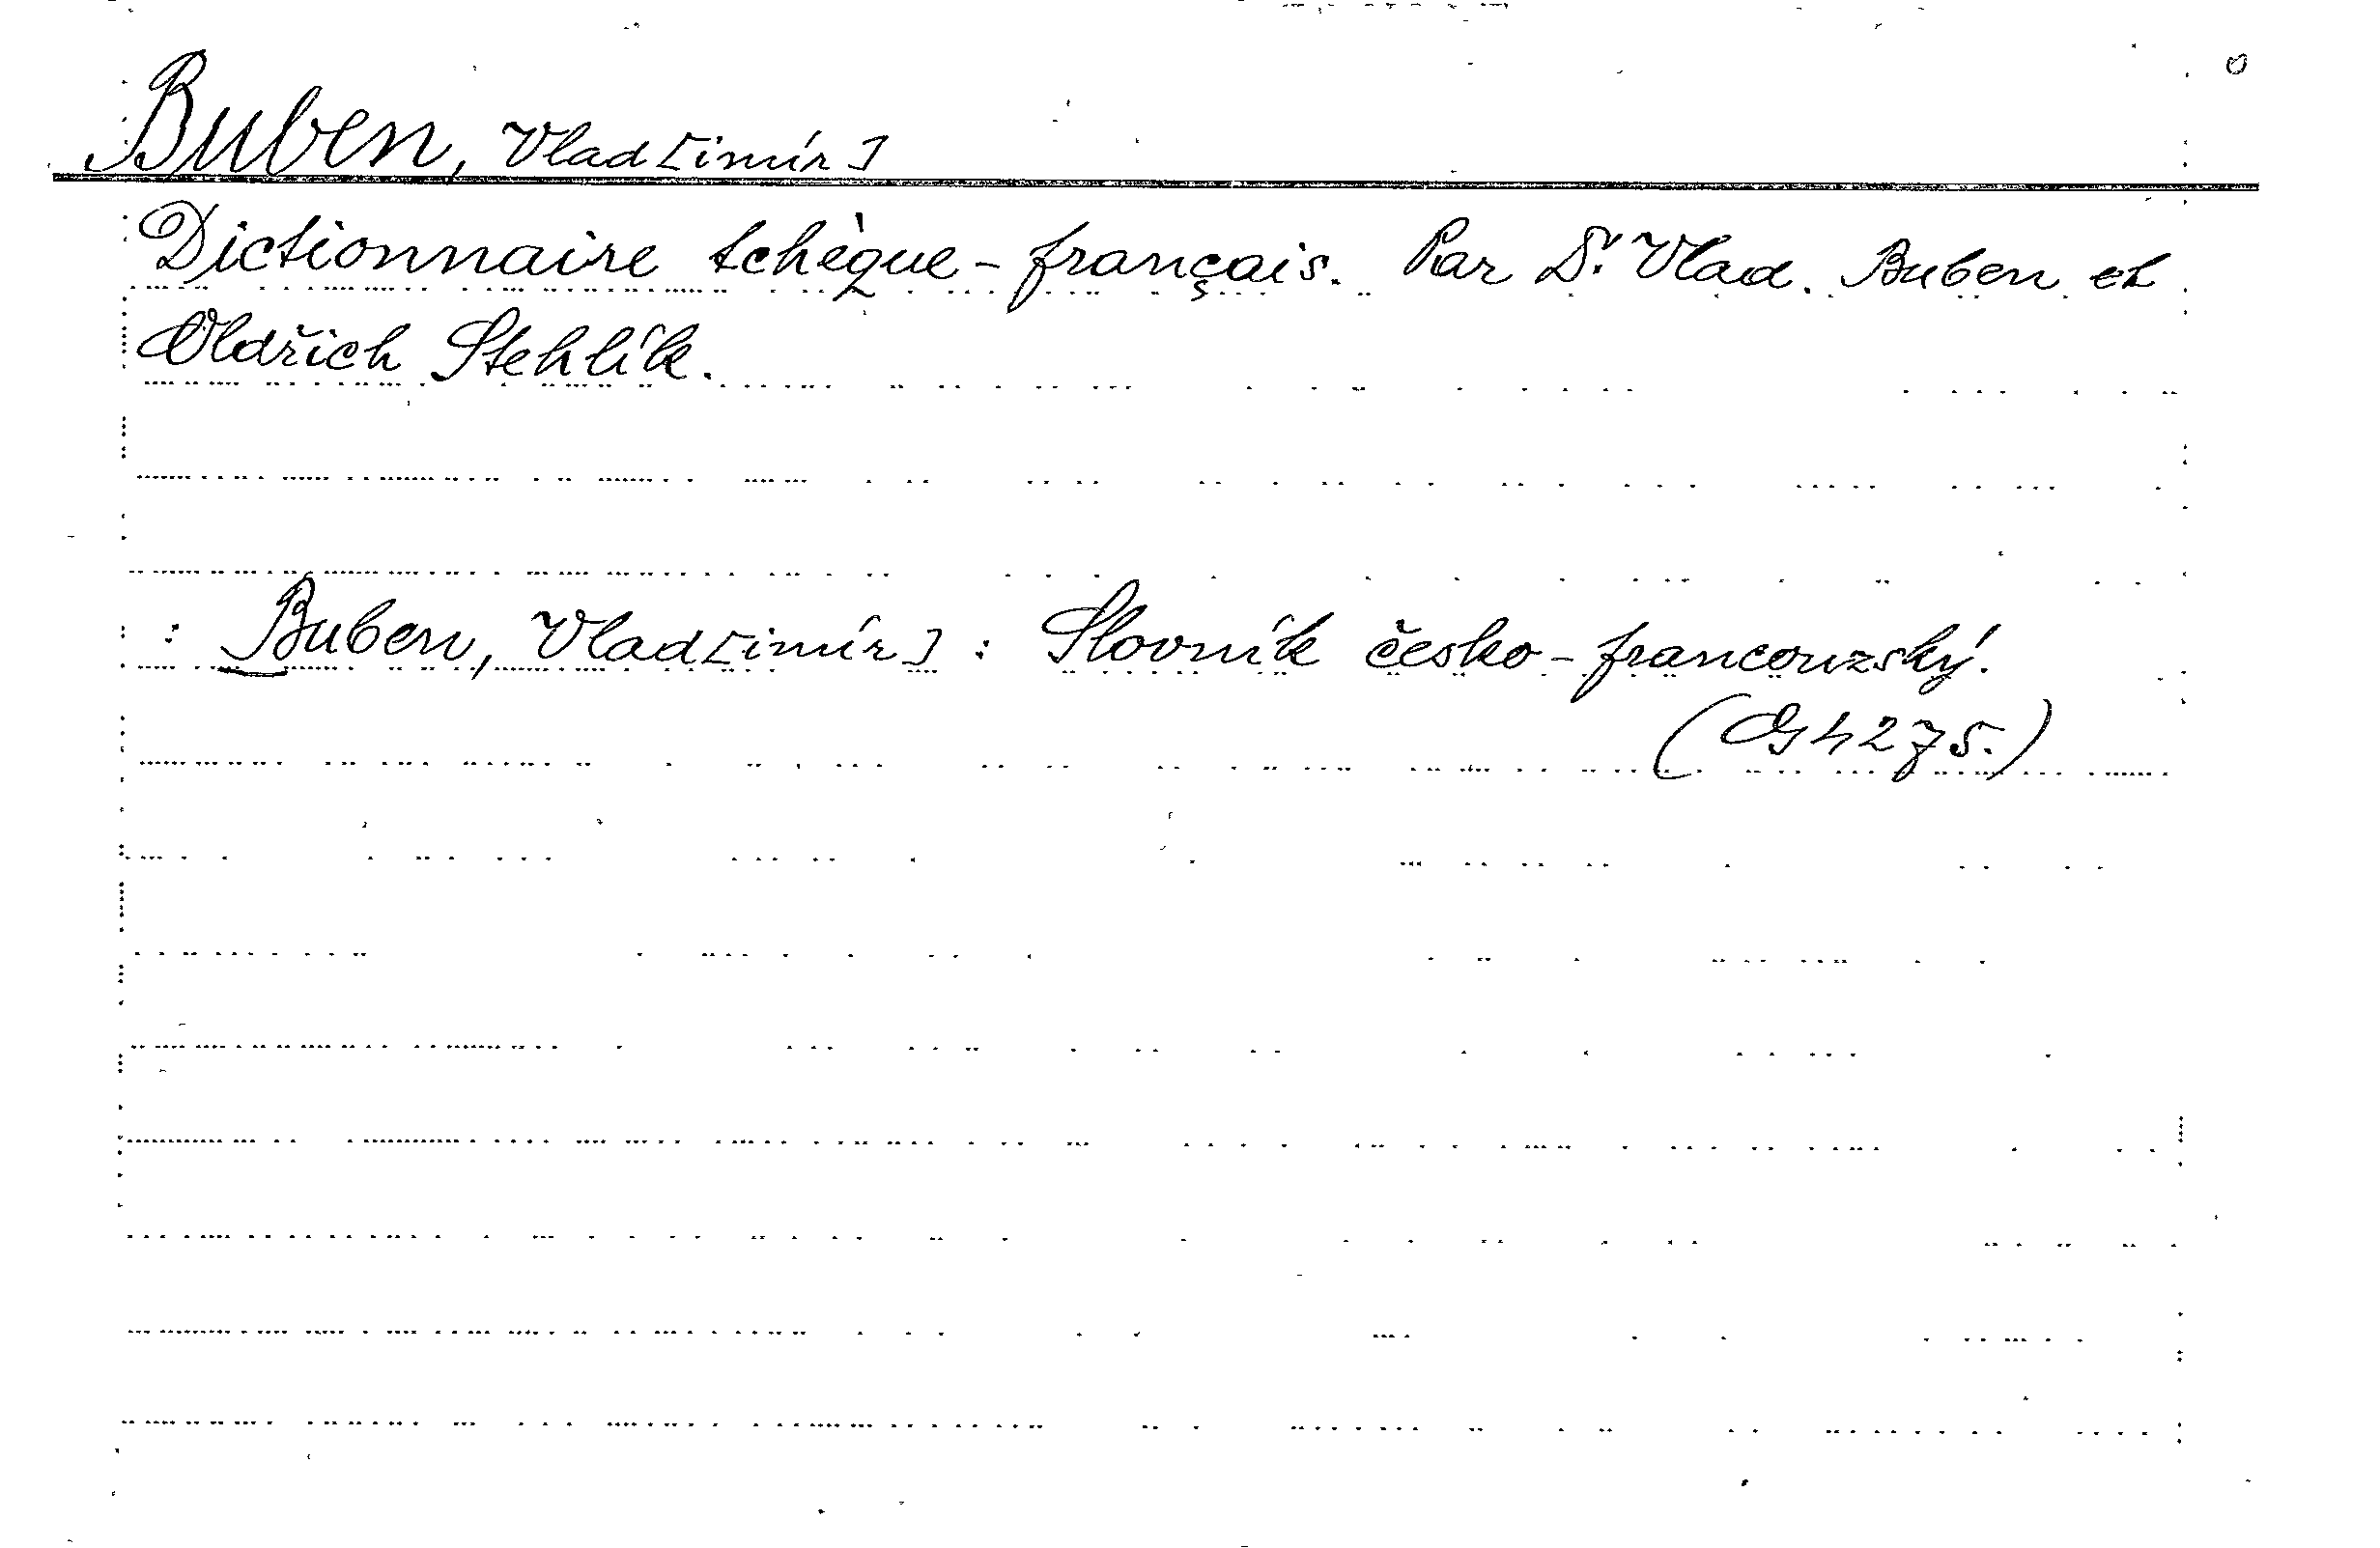 Buben, Vlad[imír]
Dictionnaire tchèque-français. Par Dr. Vlad. Buben et
Oldřich Stehlík.
: Buben, Vlad[imír] : Slovník česko-francouzský.